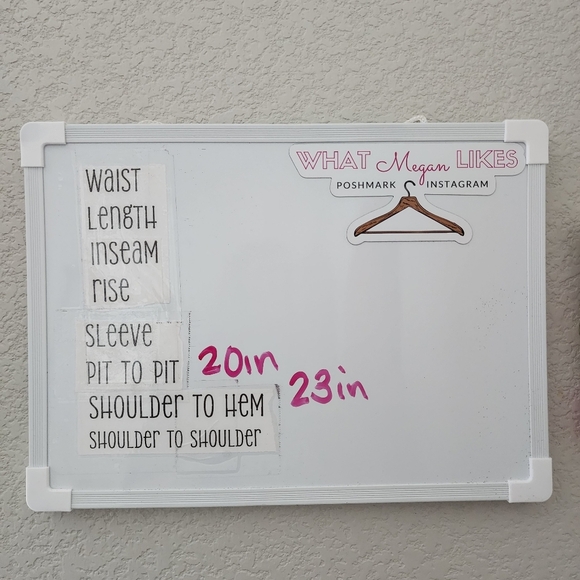 WHAT Megan LIKES
POSHMARK INSTAGRAM
WAIST
LENGTH
INSEAM
RISE
SLEEVE
PIT TO PIT 20in
SHOULDER TO HEM 23in
SHOULDER TO SHOULDER